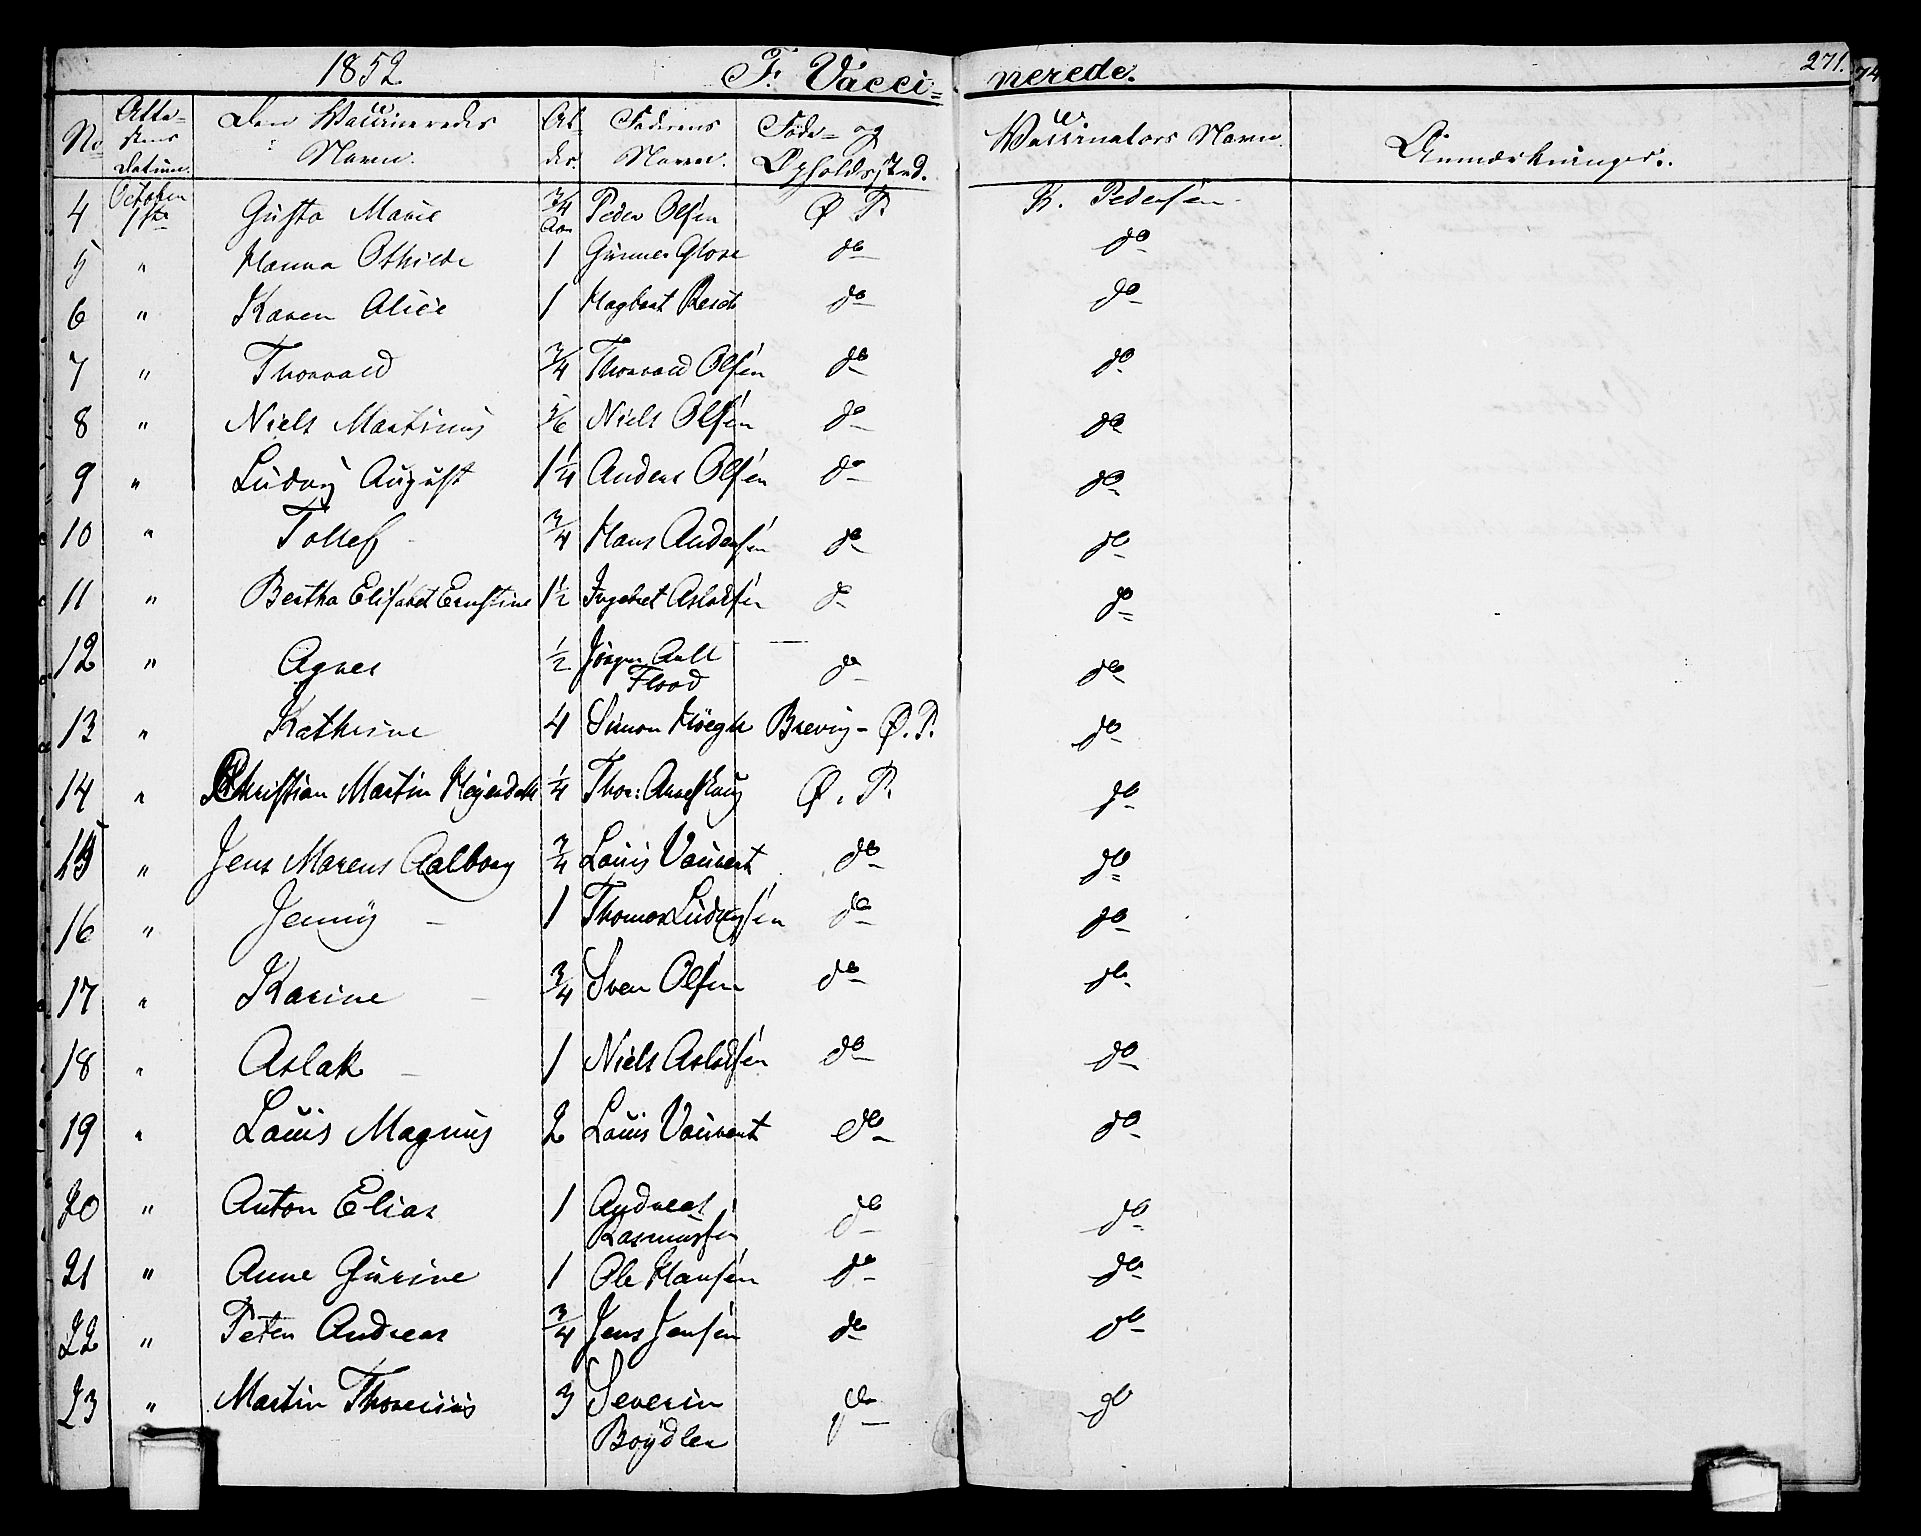 1852. F. Vacci= nerede. 271.
No Atte=stens Datum. Den Vaccineredes Navn. Al-der. Faderens Navn. Føde- og Opholdssted. Vaccinators Navn. Anmærkninger.
4 October 1ste Gusta Marie 3/4 Aar Peder Olsen Ø P. K. Pedersen
5 " Hanna Othilde 1 Gunner do do
6 " Karen Alice 1 Hagbart do do
7 " Thorvald 3/4 Thorvald Olsen do do
8 " Niels Martinus 5/6 Niels Olsen do do
9 " Ludvig August 1 1/4 Anders Olsen do do
10 " Tollef 3/4 Hans Andersen do do
11 " Bertha Elisabet Ernstine 1 1/2 Ingebret Aslaksen do do
12 " Agnes 1/2 Jørgen Aall Flood do do
13 " Kathrine 4 Simon Høegh Brevig - Ø. P. do
14 " Christian Martin Heyerdahl 1/4 Thor: Ø. P. do
15 " Jens Marens Aalborg 3/4 Louis Vauvert do do
16 " Jenny 1 Thomas Ludvigsen do do
17 " Karine 3/4 Sven Olsen do do
18 " Aslak 1 Niels Aslaksen do do
19 " Louis Magnus 2 Louis Vauvert do do
20 " Anton Elias 1 Andreas Rasmussen do do
21 " Anne Gurine 1 Ole Hansen do do
22 " Peter Andreas 3/4 Jens Jensen do do
23 " Martin 3 Severin Boydler do do